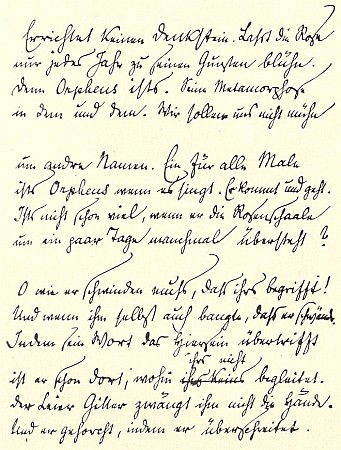 Errichtet keinen Denkstein. Laßt die Rose
nur jedes Jahr zu seinen Gunsten blühn.
Denn Orpheus ists. Seine Metamorphose
in dem und dem. Wir sollen uns nicht mühn
um andre Namen. Ein für alle Male
ists Orpheus wenn es singt. Er kommt und geht.
Ists nicht schon viel, wenn er die Rosenschaale
um ein paar Tage manchmal übersteht?
O wie er schwinden muß, daß ihrs begrifft!
Und wenn ihm selbst auch bangte, daß er schwände.
Indem sein Wort das Hiersein übertrifft
ihrs nicht
ist er schon dort, wohin begleitet.
Der Leier Gitter zwängt ihm nicht die Hände.
Und er gehorcht, indem er überschreitet.